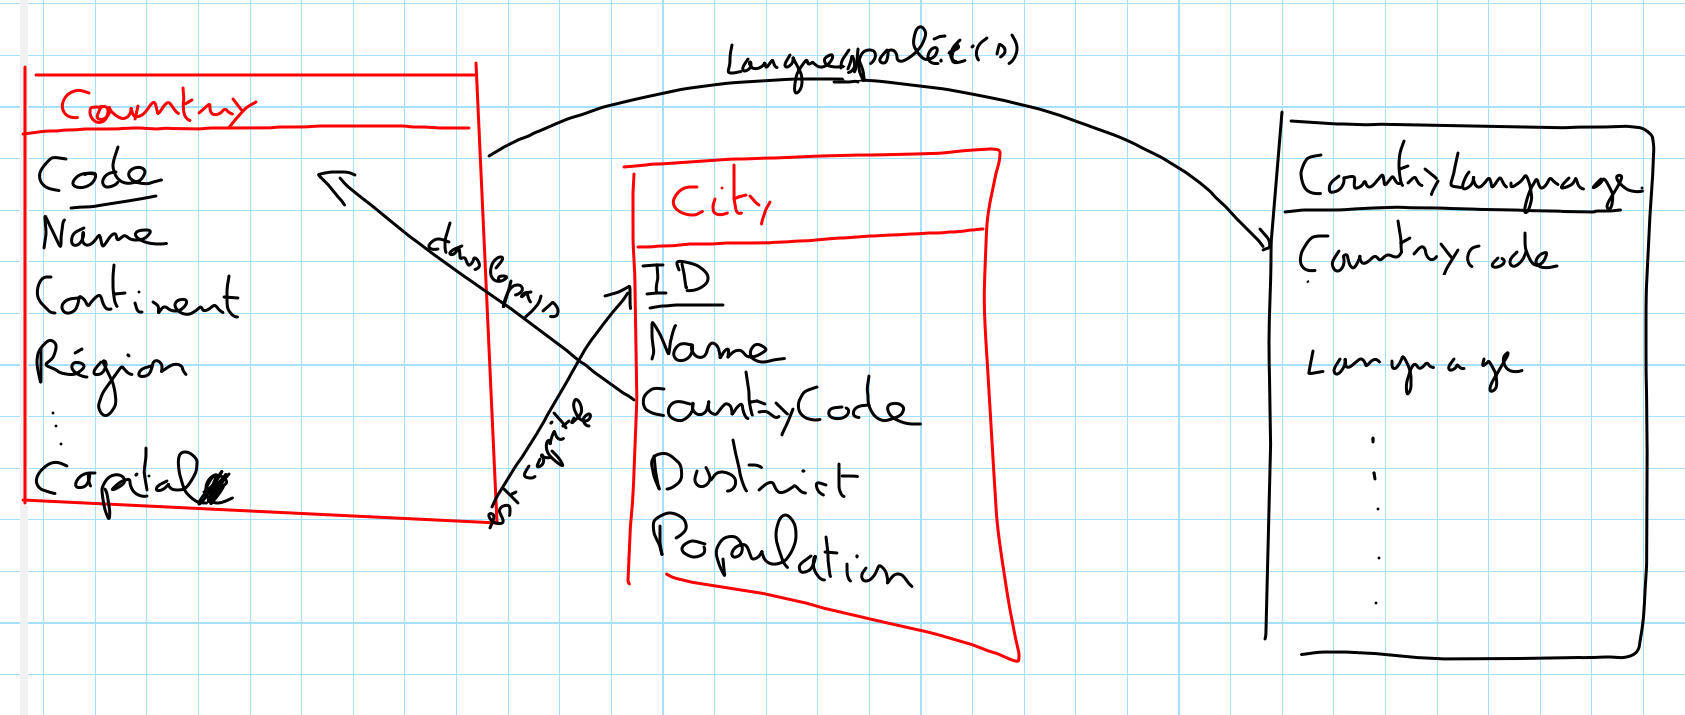 Langue(s) parlée(s)
Country
Code
Name
Continent
Région
Capital
dans le pays
est capitale
City
ID
Name
CountryCode
District
Population
CountryLanguage
Countrycode
Language